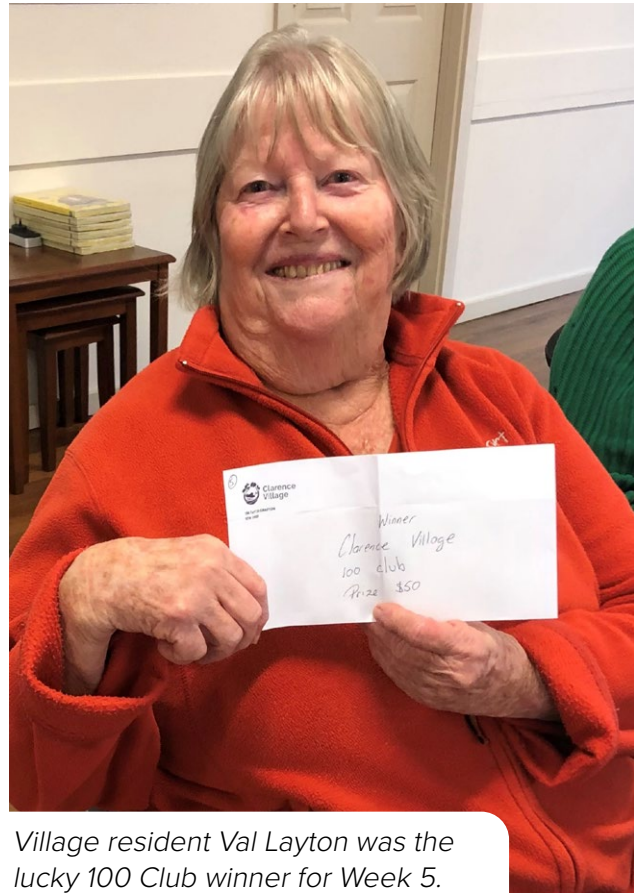 Clarence
Village
Winner
Clarence Village
100 club
Prize $50
Village resident Val Layton was the
lucky 100 Club winner for Week 5.